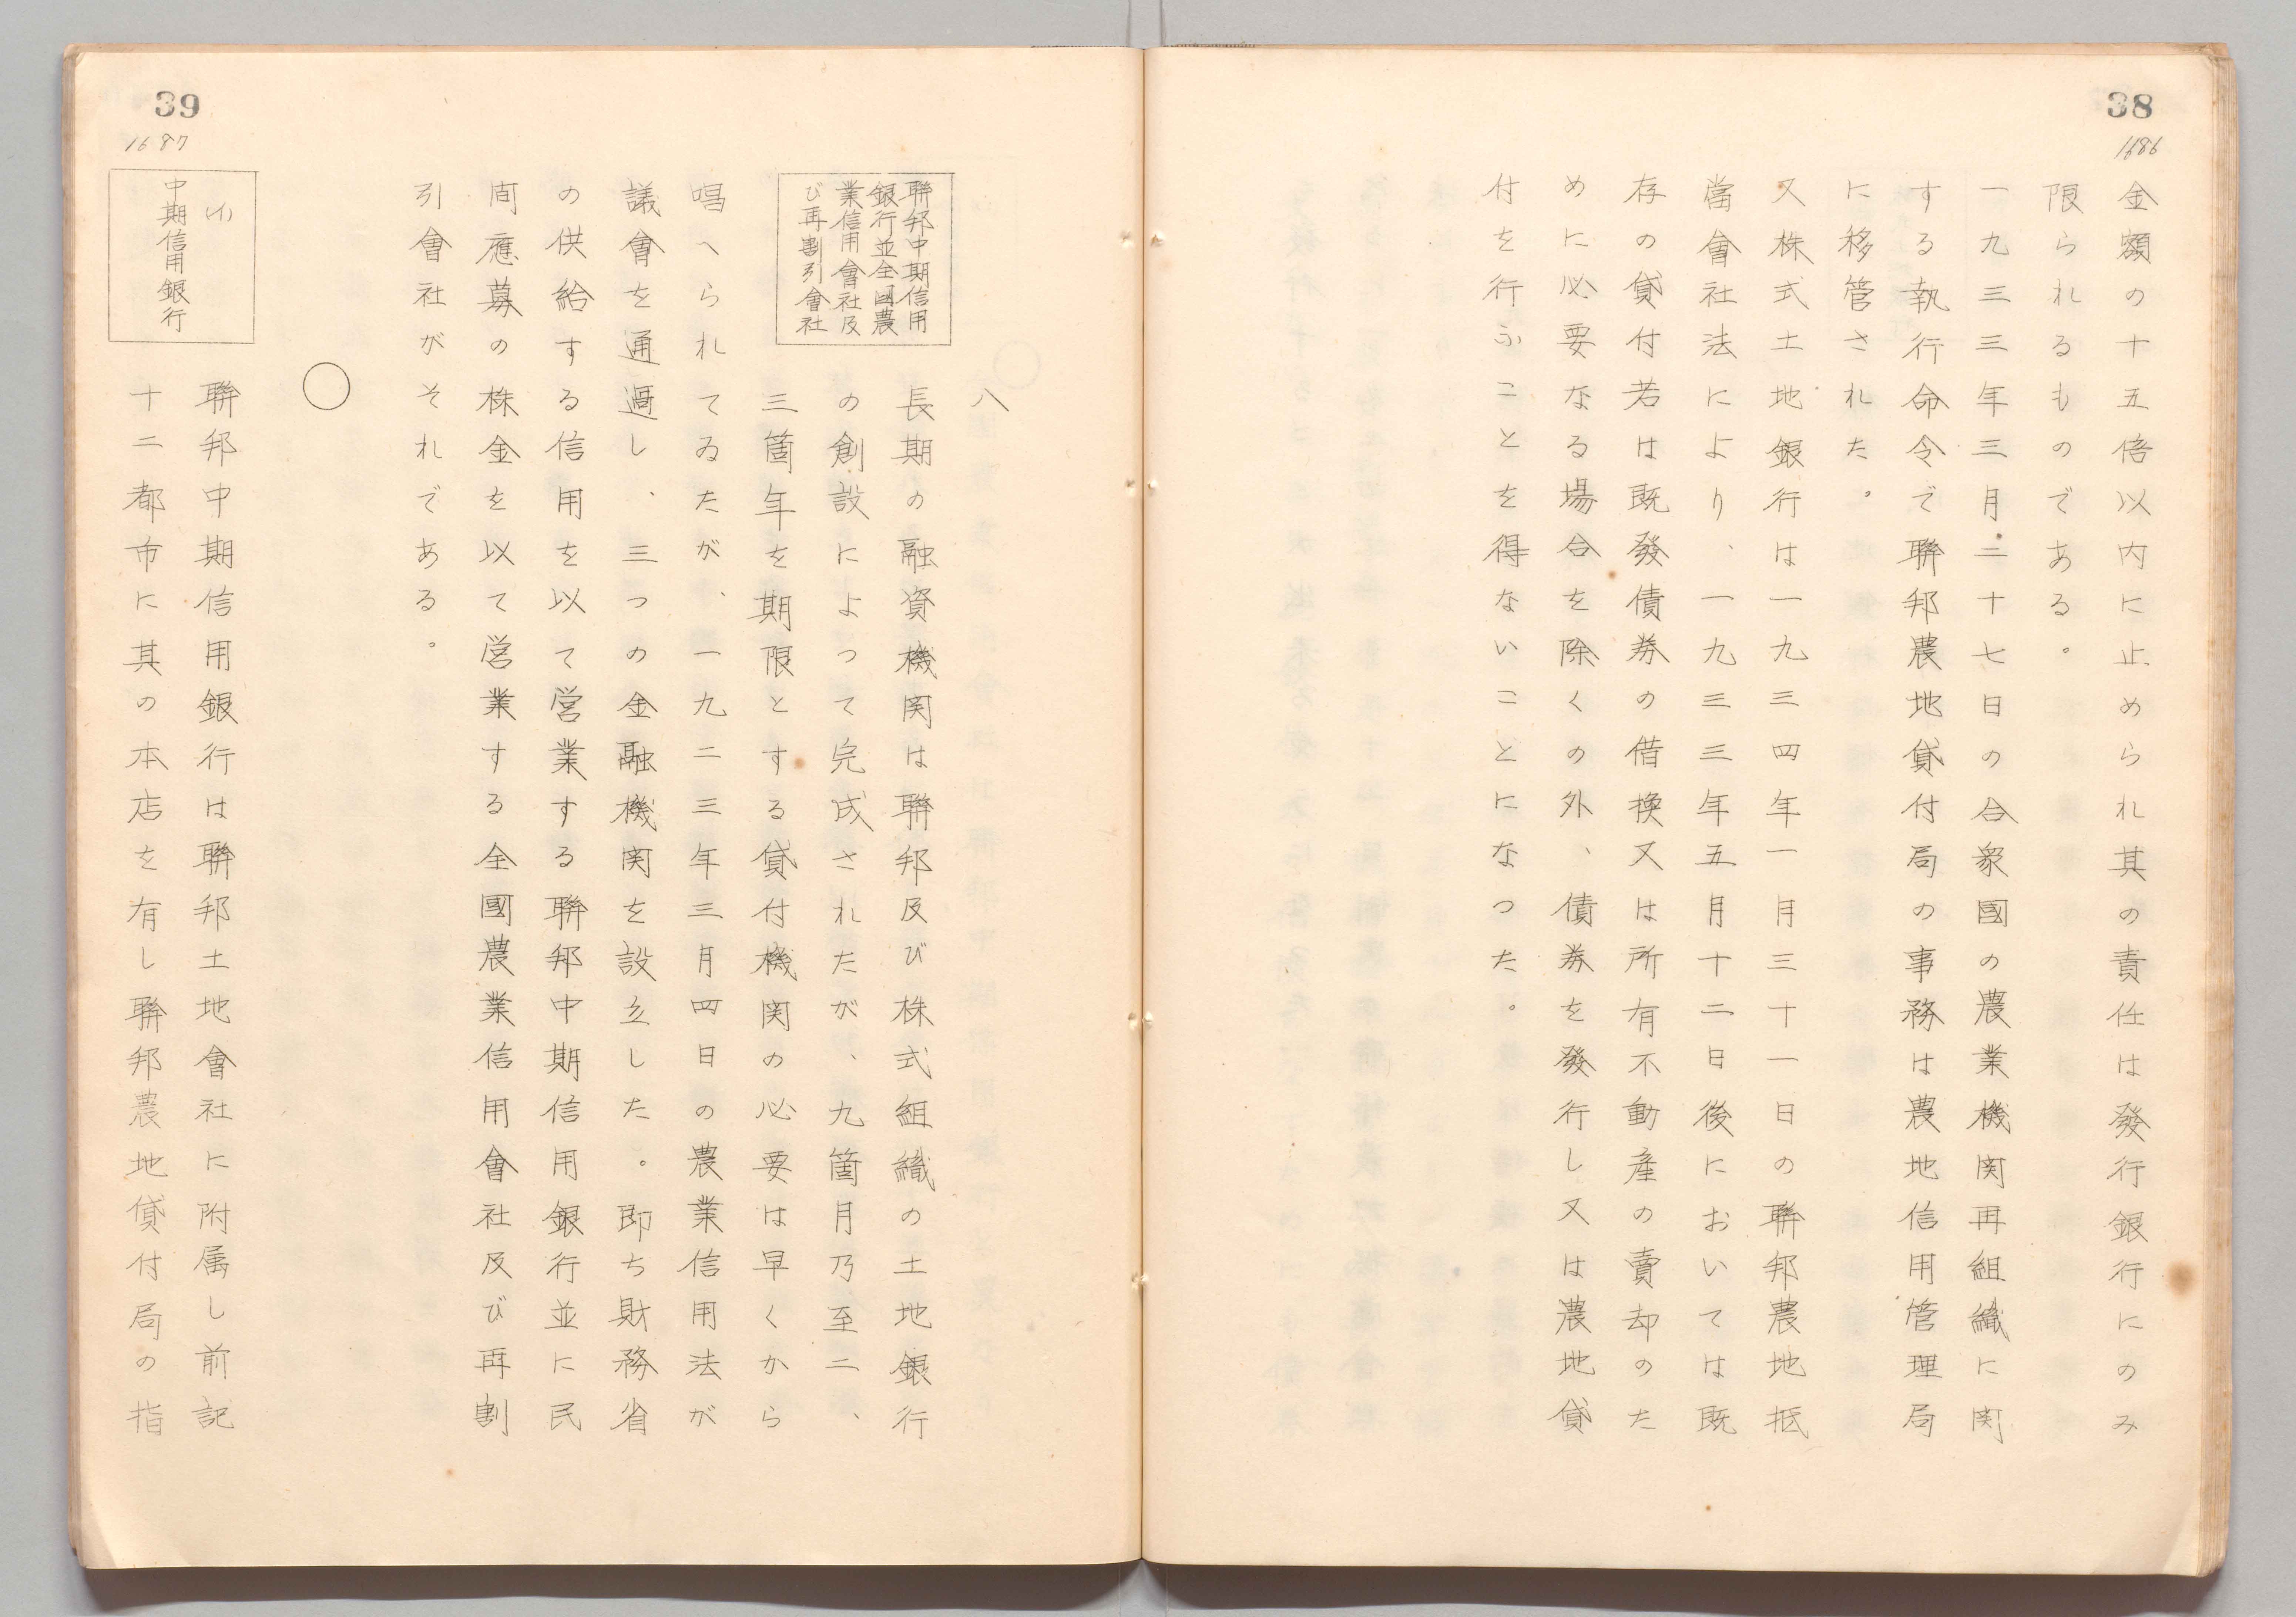 38
1686
金額の十五倍以内に止められ其の責任は發行銀行にのみ
限られるものである。
一九三三年三月二十七日の合衆國の農業機関再組織に関
する執行命令で聯邦農地貸付局の事務は農地信用管理局
に移管された。
又株式土地銀行は一九三四年一月三十一日の聯邦農地抵
當會社法により、一九三三年五月十二日後においては既
存の貸付若は既發債券の借換又は所有不動産の賣却のた
めに必要なる場合を除くの外、債券を發行し又は農地貸
付を行ふことを得ないことになつた。
39
1687
八
聯邦中期信用
銀行並全國農
業信用會社及
び再割引會社
長期の融資機関は聯邦及び株式組織の土地銀行
の創設によつて完成されたが、九箇月乃至二、
三箇年を期限とする貸付機関の必要は早くから
唱へられてゐたが、一九二三年三月四日の農業信用法が
議會を通過し、三つの金融機関を設立した。即ち財務省
の供給する信用を以て営業する聯邦中期信用銀行並に民
間應募の株金を以て営業する全國農業信用會社及び再割
引會社がそれである。
○
(イ)
中期信用銀行
聯邦中期信用銀行は聯邦土地會社に附属し前記
十二都市に其の本店を有し聯邦農地貸付局の指